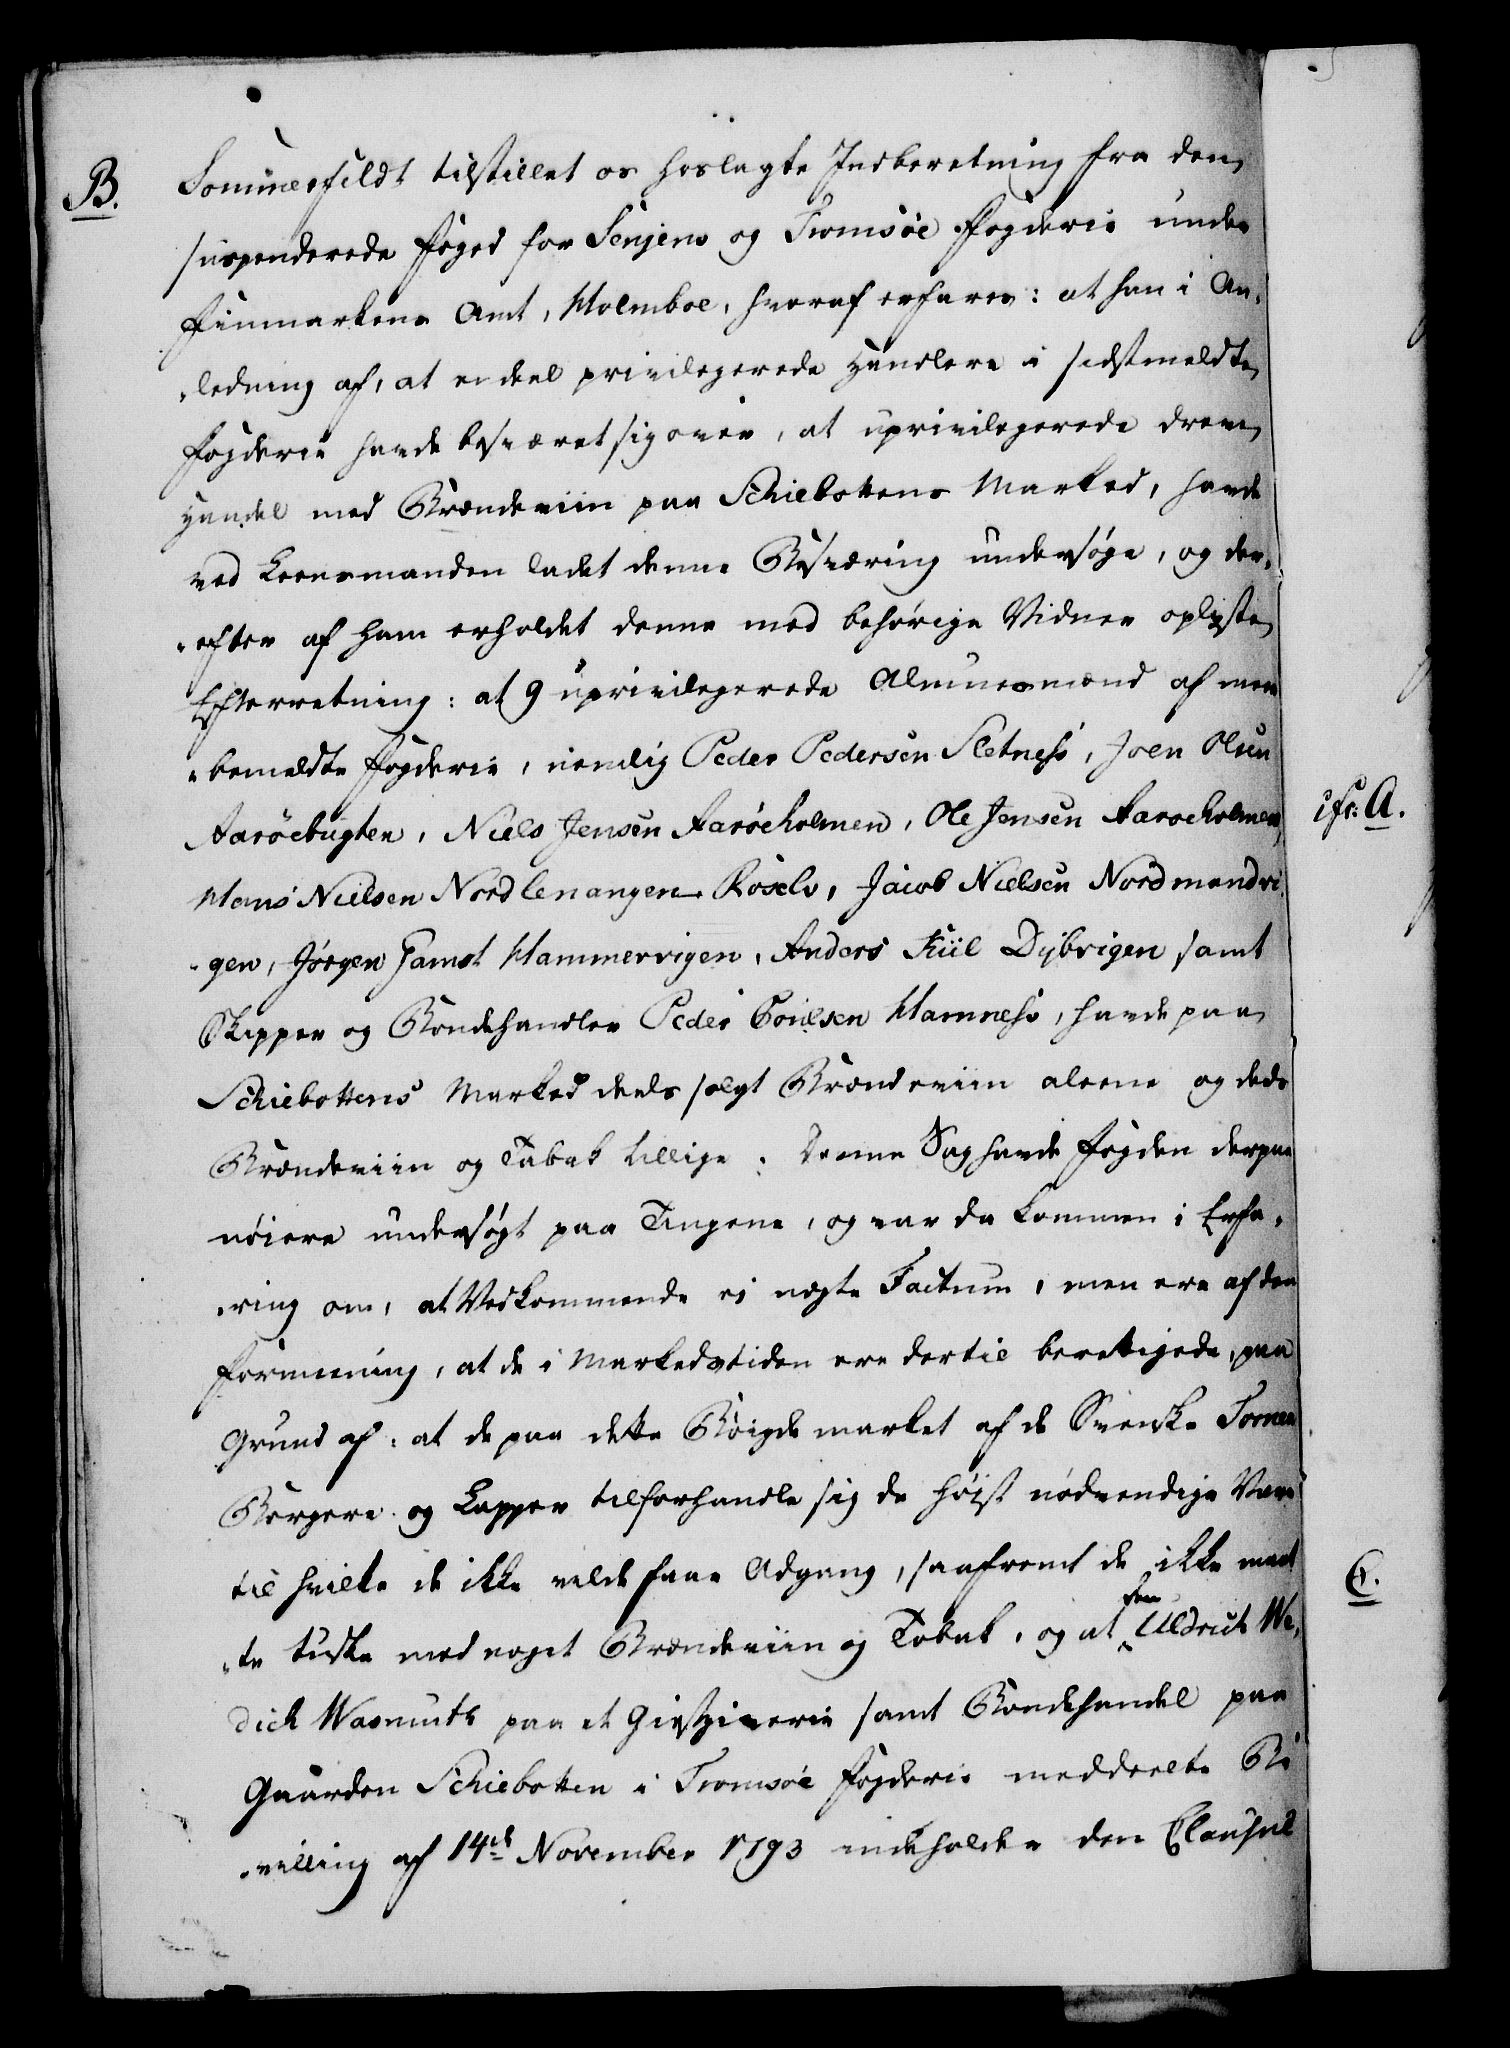 B.
Sommerfeldt tilstillet os hoslagte Indberetning fra den
suspenderede Foged for Senjens og Tromsöe Fogderie under
Finmarkens Amt, Holmboe, hvoraf erfares: at han i An-
-ledning af, at en deel privilegerede Handlere i sidstmeldte
Fogderie havde besværet sig over, at uprivilegerede dreve
Handel med Brændeviin paa Schiebottens Marked, havde
ved Leensmanden ladet denne Besværing undersøge, og der-
-efter af ham erholdet denne med behørige Vidner oplyste
Efterretning: at 9 uprivilegerede Almuesmænd af meer
-bemeldte Fogderie, nemlig Peder Pedersen Sletness, Joen Olsen
Aaröebugten, Niels Jensen Aaröeholmen, Ole Jensen Aaroeholmen,
Hans Nielsen Nordlenangen Röselv, Jacob Nielsen Nordmandvi-
-gen, Jørgen Gamst Hammervigen, Anders Kiil Dybvigen samt
Skipper og Bondehandler Peder Povelsen Hamness, havde paa
Schiebottens Marked deels solgt Brændeviin aleene og deels
Brændeviin og Tabak tillige. Denne Sag havde Fogden derpaa
nöiere undersøgt paa Tingene, og var da kommen i Erfa-
-ring om, at Vedkommende ei negte Factum, men ere af den
Formening, at de i Markedstiden ere dertil berettigede, paa
Grund af: at de paa dette Böigdemarket af de Svenske Tornea
Borgere og Lapper tilforhandle sig de höist nödvendige Vare
til hvilke de ikke vilde faae Adgang, saafremt de ikke maat
-te tuske med noget Brændeviin og Tobak, og at den Uldrich We-
dich Wasmuth paa et Giestgiverie samt Bondehandel paa
Gaarden Schiebotten i Tromsöe Fogderie meddeelte Be
-villing af 14de November 1793 indeholder den Clausul
cfr. A.
C.